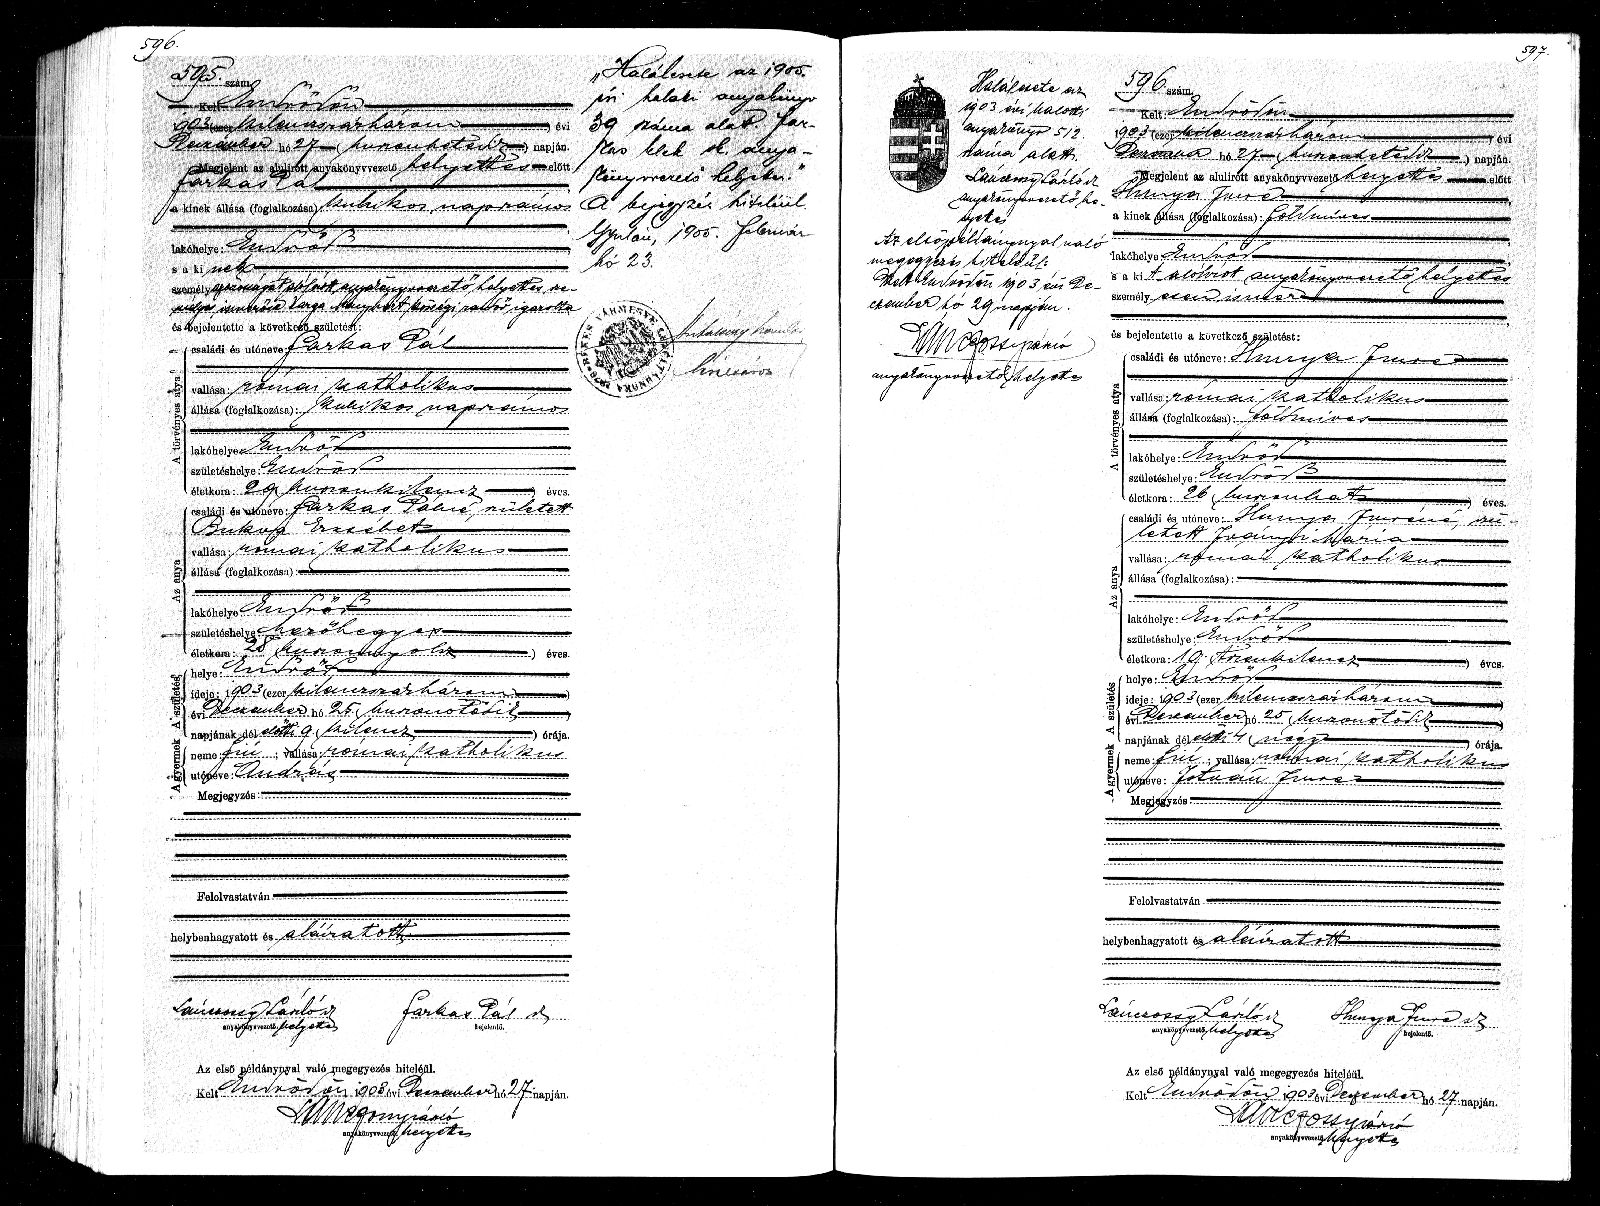 596.
595. szám.
Kelt Endrődön
1903 (ezer kilenczszázhárom) évi
December hó 27 (huszonhetedik) napján.
Megjelent az alulirott anyakönyvvezető helyettes előtt
Farkas Pál
a kinek állása (foglalkozása) kubikos napszámos
lakóhelye: Endrőd
s a ki nek
személyazonosságát alólirt anyakönyvvezető helyettes
ismerősö Varga községi igazolta
és bejelentette a következő születést:
A törvényes atya
családi és utóneve: Farkas Pál
vallása: római katholikus
állása (foglalkozása): kubikos napszámos
lakóhelye: Endrőd
születéshelye: Endrőd
életkora: 29 (huszonkilencz) éves.
Az anya
családi és utóneve: Farkas Pálné, született
Bukva Erzsébet
vallása: római katholikus
állása (foglalkozása):
lakóhelye: Endrőd
születéshelye: Mezőhegyes
életkora: 28 (huszonnyolcz) éves.
A születés
helye: Endrőd
ideje: 1903 (ezer kilenczszázhárom)
évi December hó 25 (huszonötödik)
napjának dél előtti 9 (kilencz) órája.
A gyermek
neme: fiú; vallása: római katholikus
utóneve: András
Megjegyzés:
Felolvastatván
helybenhagyatott és aláíratott
Lánczossy László
anyakönyvvezető helyettes
Farkas Pál
bejelentő.
Az első példánynyal való megegyezés hiteléül.
Kelt Endrődön 1903 évi December hó 27 napján.
Lánczossy László
anyakönyvvezető helyettes
„Halálesete az 1905.
évi halotti anyakönyv
39 száma alatt. Far-
kas Elek sk. anya-
könyvvezető helyettes."
A bejegyzés hiteléül.
Gyulán, 1905. február
hó 23.
BÉKÉS VÁRMEGYE LEVÉLTÁRNOKA
597.
Halálesete az
1903 évi halotti
anyakönyv 512
száma alatt.
Lánczossy László
anyakönyvvezető he-
lyettes
Az első példánynyal való
megegyezés hiteléül:
Kelt Endrődön 1903 évi De-
czember hó 29 napján.
Lánczossy László
anyakönyvvezető helyettes
596 szám.
Kelt: Endrődön
1903 (ezer kilenczszázhárom) évi
December hó 27 (huszonhetedik) napján.
Megjelent az alulirott anyakönyvvezető helyettes előtt
Hunya Imre
a kinek állása (foglalkozása): földmíves
lakóhelye: Endrőd
s a ki t alólirt anyakönyvvezető helyettes
személyesen ismer
és bejelentette a következő születést:
A törvényes atya
családi és utóneve: Hunya Imre
vallása: római katholikus
állása (foglalkozása): földmíves
lakóhelye: Endrőd
születéshelye: Endrőd
életkora: 26 (huszonhat) éves.
Az anya
családi és utóneve: Hunya Imréné, szü-
letett Iványi Mária
vallása: római katholikus
állása (foglalkozása):
lakóhelye: Endrőd
születéshelye: Endrőd
életkora: 19 (tizenkilencz) éves.
A születés
helye: Endrőd
ideje: 1903 (ezer kilenczszázhárom)
évi December hó 25 (huszonötödik)
napjának dél előtti 4 (négy) órája.
A gyermek
neme: fiú; vallása: római katholikus
utóneve: István Imre
Megjegyzés
Felolvastatván
helybenhagyatott és aláíratott
Lánczossy László
anyakönyvvezető helyettes
Hunya Imre
bejelentő.
Az első példánynyal való megegyezés hiteléül.
Kelt Endrődön 1903 évi Deczember hó 27 napján.
Lánczossy László
anyakönyvvezető helyettes